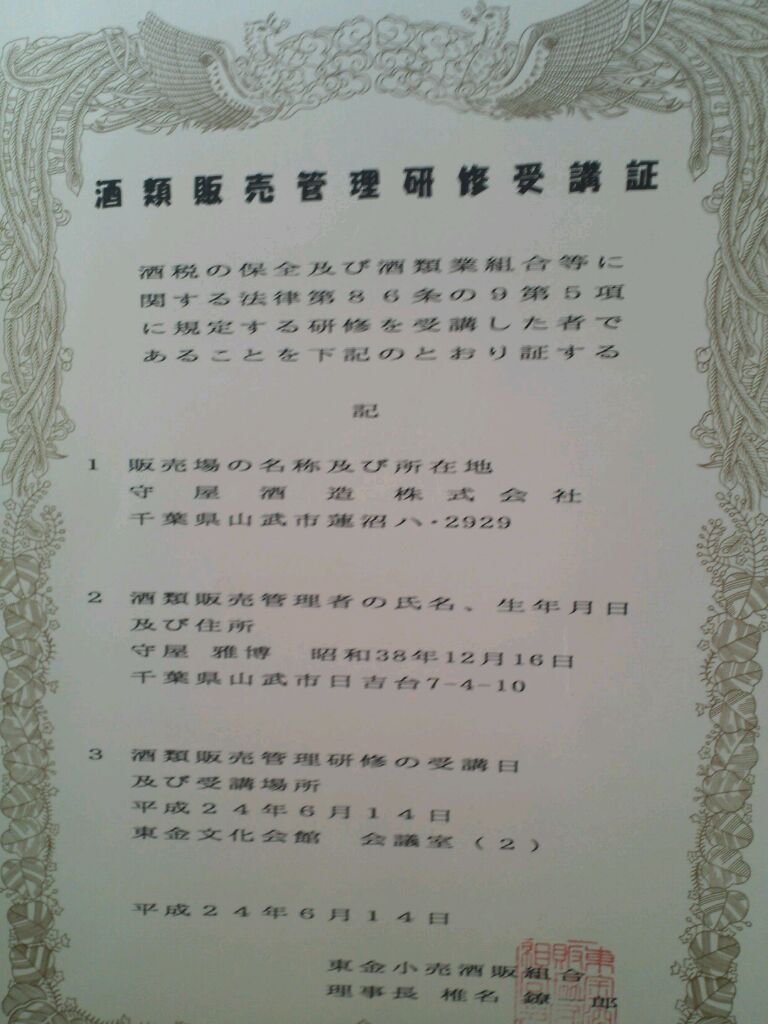 酒類販売管理研修受講証
酒税の保全及び酒類業組合等に
関する法律第86条の9第5項
に規定する研修を受講した者で
あることを下記のとおり証する
記
1 販売場の名称及び所在地
守屋酒造株式会社
千葉県山武市蓮沼ハ・2929
2 酒類販売管理者の氏名、生年月日
及び住所
守屋 雅博 昭和38年12月16日
千葉県山武市日吉台7-4-10
3 酒類販売管理研修の受講日
及び受講場所
平成24年6月14日
東金文化会館 会議室(2)
平成24年6月14日
東金小売酒販組合
理事長 椎名 鐐一郎